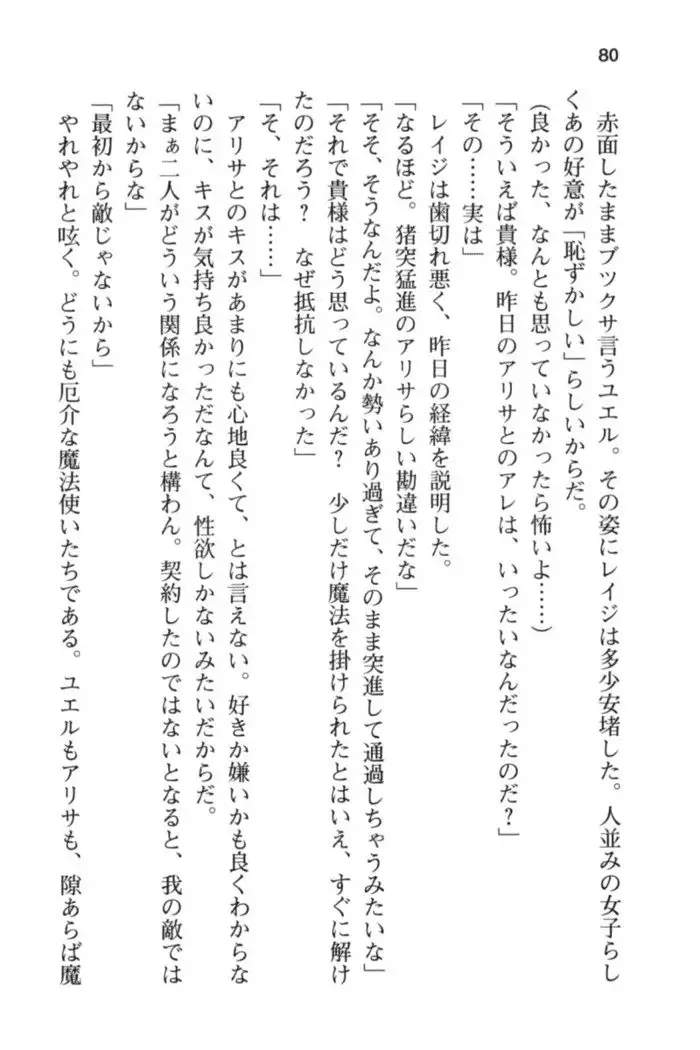 80
赤面したままブツクサ言うユエル。その姿にレイジは多少安堵した。人並みの女子らし
くあの好意が「恥ずかしい」らしいからだ。
(良かった、なんとも思っていなかったら怖いよ……)
「そういえば貴様。昨日のアリサとのアレは、いったいなんだったのだ?」
「その……実は」
レイジは歯切れ悪く、昨日の経緯を説明した。
「なるほど。猪突猛進のアリサらしい勘違いだな」
「そそ、そうなんだよ。なんか勢いあり過ぎて、そのまま突進して通過しちゃうみたいな」
「それで貴様はどう思っているんだ? 少しだけ魔法を掛けられたとはいえ、すぐに解け
たのだろう? なぜ抵抗しなかった」
「そ、それは……」
アリサとのキスがあまりにも心地良くて、とは言えない。好きか嫌いかも良くわからな
いのに、キスが気持ち良かっただなんて、性欲しかないみたいだからだ。
「まぁ二人がどういう関係になろうと構わん。契約したのではないとなると、我の敵では
ないからな」
「最初から敵じゃないから」
やれやれと呟く。どうにも厄介な魔法使いたちである。ユエルもアリサも、隙あらば魔